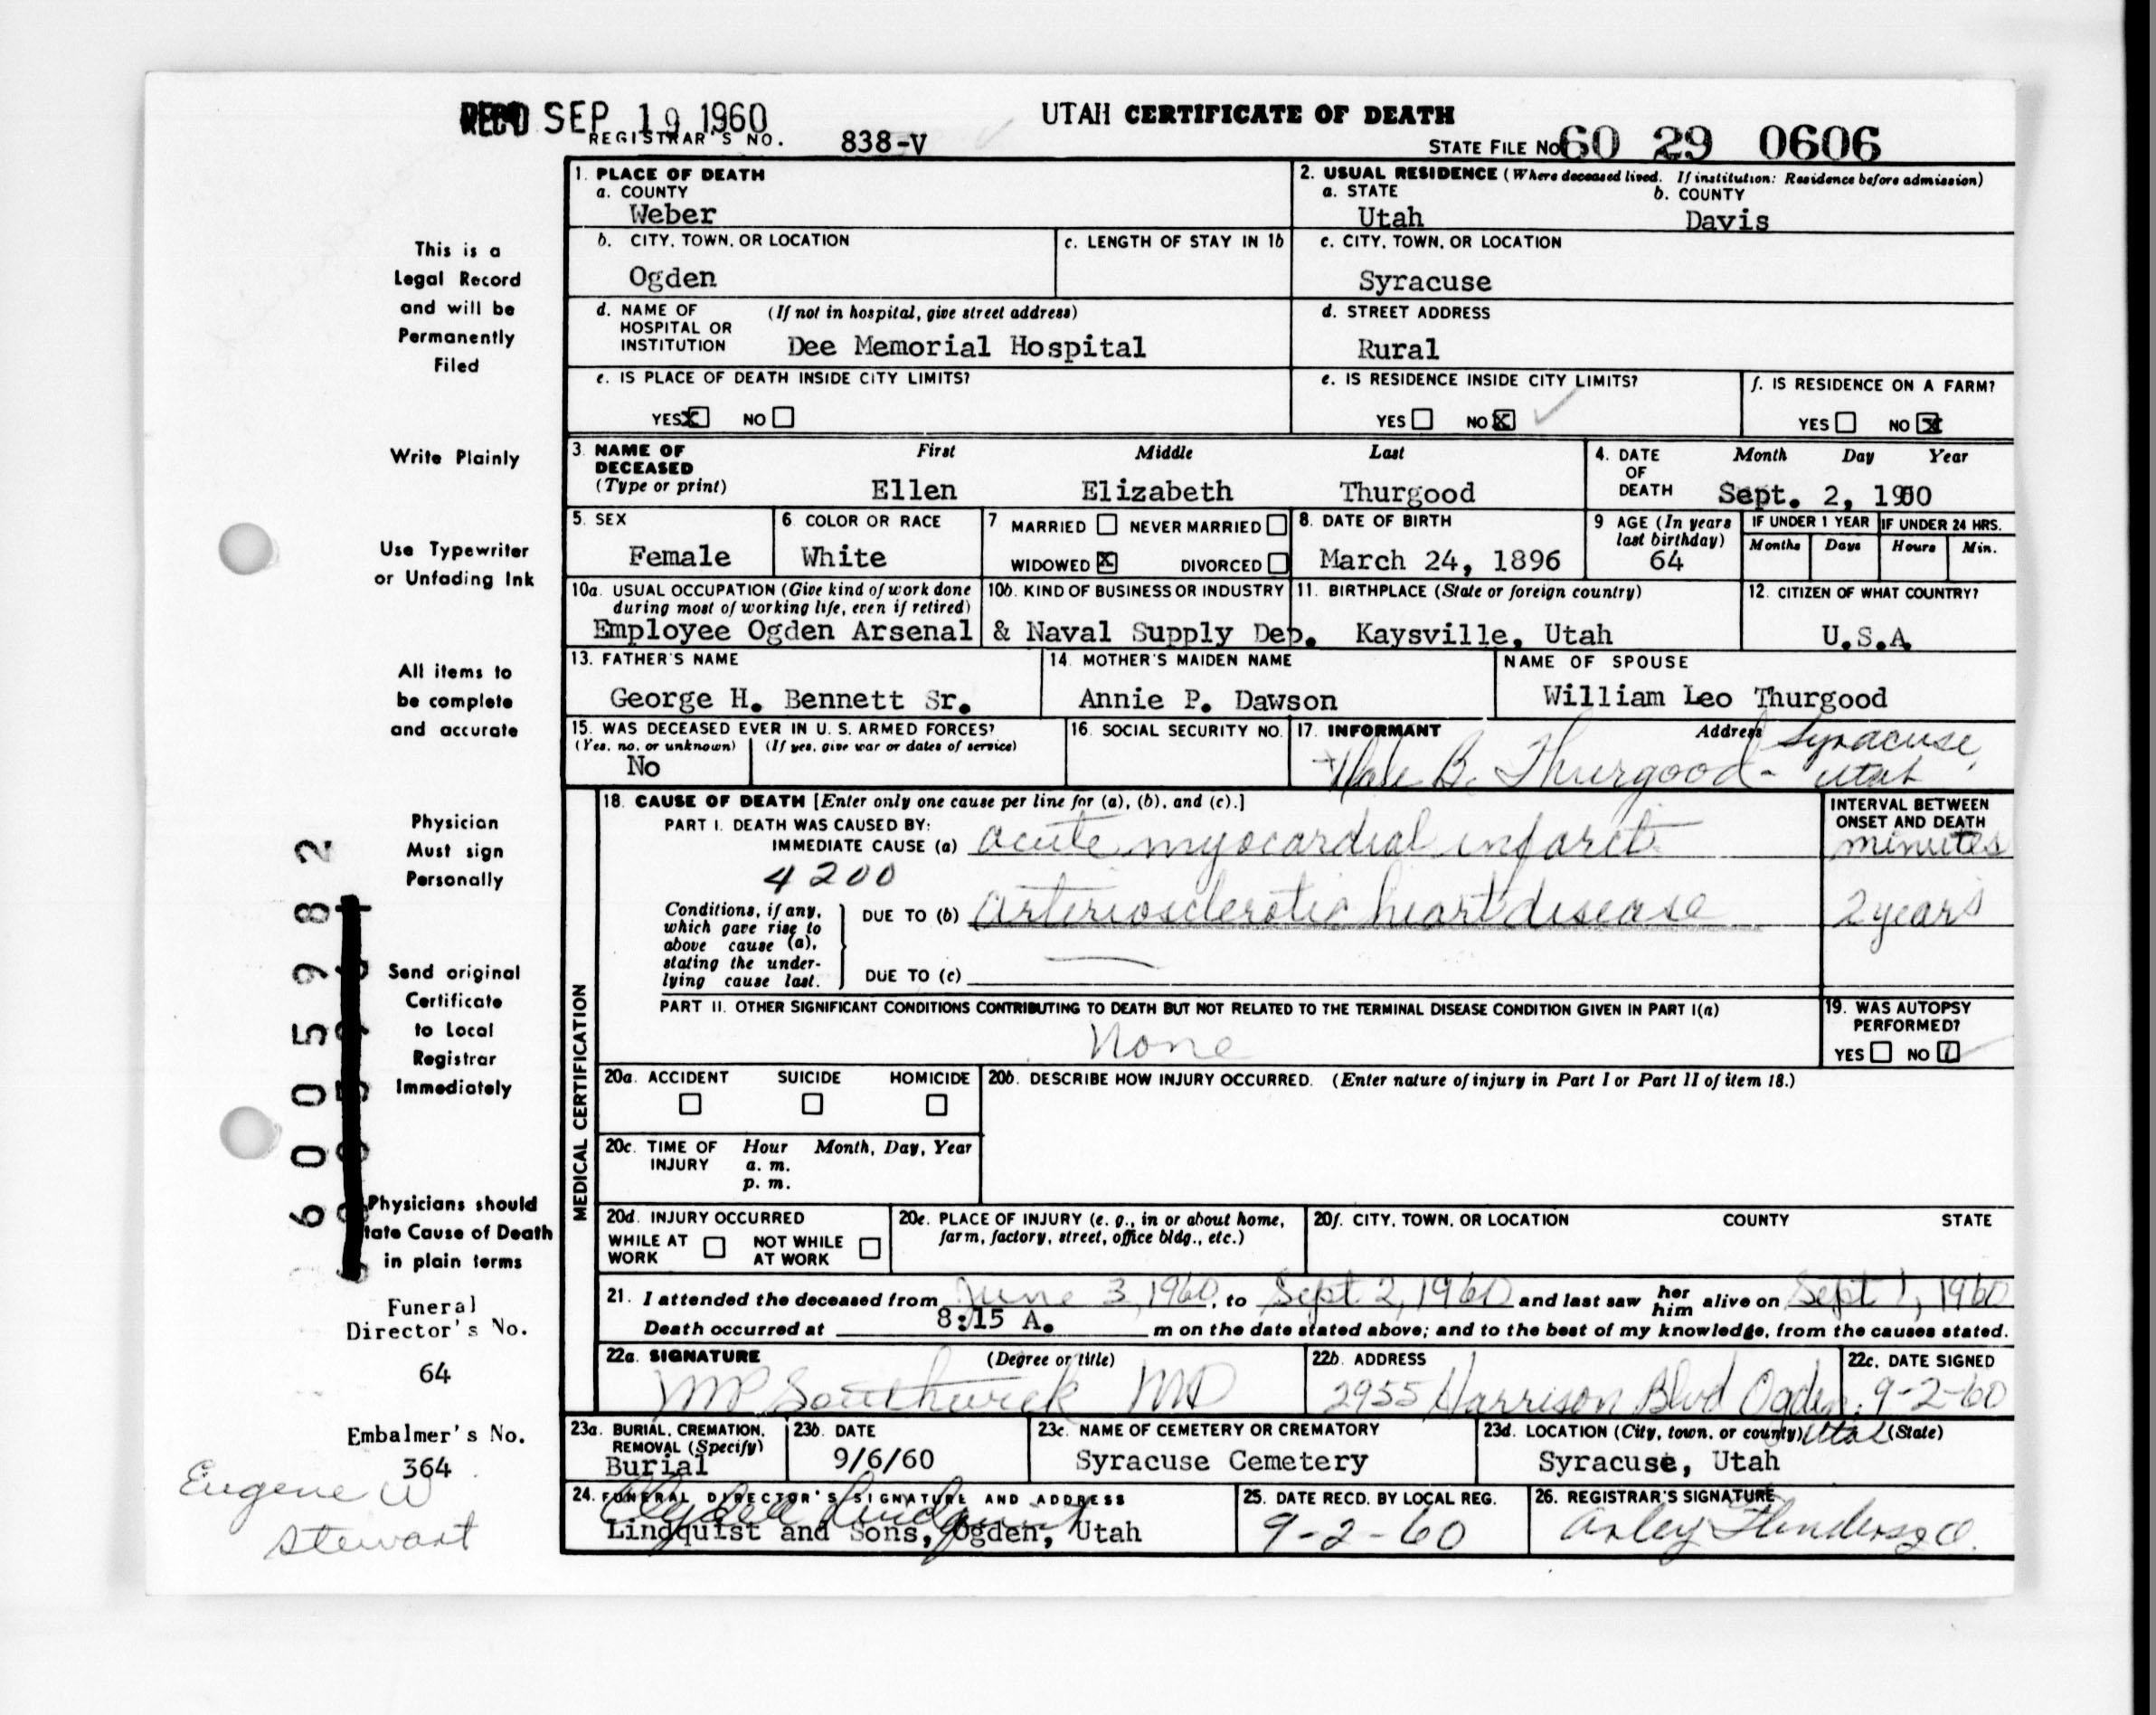 REC'D SEP 19 1960
UTAH CERTIFICATE OF DEATH
REGISTRAR'S NO. 838-V
STATE FILE No 60 29 0606
1. PLACE OF DEATH
a. COUNTY
Weber
2. USUAL RESIDENCE (Where deceased lived. If institution: Residence before admission)
a. STATE b. COUNTY
Utah Davis
b. CITY, TOWN, OR LOCATION
Ogden
c. LENGTH OF STAY IN 1b
c. CITY, TOWN, OR LOCATION
Syracuse
d. NAME OF HOSPITAL OR INSTITUTION (If not in hospital, give street address)
Dee Memorial Hospital
d. STREET ADDRESS
Rural
e. IS PLACE OF DEATH INSIDE CITY LIMITS?
YES X NO
e. IS RESIDENCE INSIDE CITY LIMITS?
YES NO X
f. IS RESIDENCE ON A FARM?
YES NO X
3. NAME OF DECEASED (Type or print)
First Middle Last
Ellen Elizabeth Thurgood
4. DATE OF DEATH Month Day Year
Sept. 2,
5. SEX
Female
6. COLOR OR RACE
White
7 MARRIED NEVER MARRIED
WIDOWED X DIVORCED
8. DATE OF BIRTH
March 24, 1896
9 AGE (In years last birthday)
64
IF UNDER 1 YEAR IF UNDER 24 HRS.
Months Days Hours Min.
10a. USUAL OCCUPATION (Give kind of work done during most of working life, even if retired)
10b. KIND OF BUSINESS OR INDUSTRY
Employee Ogden Arsenal & Naval Supply Dep.
11. BIRTHPLACE (State or foreign country)
Kaysville, Utah
12. CITIZEN OF WHAT COUNTRY?
U.S.A.
13. FATHER'S NAME
George H. Bennett Sr.
14. MOTHER'S MAIDEN NAME
Annie P. Dawson
NAME OF SPOUSE
William Leo Thurgood
15. WAS DECEASED EVER IN U. S. ARMED FORCES?
(Yes, no, or unknown) (If yes, give war or dates of service)
No
16. SOCIAL SECURITY NO.
17. INFORMANT Address
B. Thurgood - Syracuse, Utah
MEDICAL CERTIFICATION
18. CAUSE OF DEATH [Enter only one cause per line for (a), (b), and (c).]
INTERVAL BETWEEN ONSET AND DEATH
PART I. DEATH WAS CAUSED BY:
IMMEDIATE CAUSE (a) acute myocardial infarct minutes
4200
Conditions, if any, which gave rise to above cause (a), stating the underlying cause last.
DUE TO (b) arteriosclerotic heart disease 2 years
DUE TO (c)
PART II. OTHER SIGNIFICANT CONDITIONS CONTRIBUTING TO DEATH BUT NOT RELATED TO THE TERMINAL DISEASE CONDITION GIVEN IN PART I(a)
None
19. WAS AUTOPSY PERFORMED?
YES NO
20a. ACCIDENT SUICIDE HOMICIDE
20b. DESCRIBE HOW INJURY OCCURRED. (Enter nature of injury in Part I or Part II of item 18.)
20c. TIME OF INJURY Hour Month, Day, Year
a. m.
p. m.
20d. INJURY OCCURRED
WHILE AT WORK NOT WHILE AT WORK
20e. PLACE OF INJURY (e. g., in or about home, farm, factory, street, office bldg., etc.)
20f. CITY, TOWN, OR LOCATION COUNTY STATE
21. I attended the deceased from June 3, 1960, to Sept 2, 1960 and last saw her him alive on Sept 1, 1960
Death occurred at 8:15 A. m on the date stated above; and to the best of my knowledge, from the causes stated.
22a. SIGNATURE (Degree or title)
MP Southwick MD
22b. ADDRESS
2955 Harrison Blvd Ogden, Utah
22c. DATE SIGNED
9-2-60
23a. BURIAL, CREMATION, REMOVAL (Specify)
Burial
23b. DATE
9/6/60
23c. NAME OF CEMETERY OR CREMATORY
Syracuse Cemetery
23d. LOCATION (City, town, or county) (State)
Syracuse, Utah
24. FUNERAL DIRECTOR'S SIGNATURE AND ADDRESS
Lindquist and Sons, Ogden, Utah
25. DATE RECD. BY LOCAL REG.
9-2-60
26. REGISTRAR'S SIGNATURE
This is a
Legal Record
and will be
Permanently
Filed
Write Plainly
Use Typewriter
or Unfading Ink
All items to
be complete
and accurate
Physician
Must sign
Personally
Send original
Certificate
to Local
Registrar
Immediately
Physicians should
tate Cause of Death
in plain terms
Funeral
Director's No.
64
Embalmer's No.
364
Eugene W
Stewart
6005982